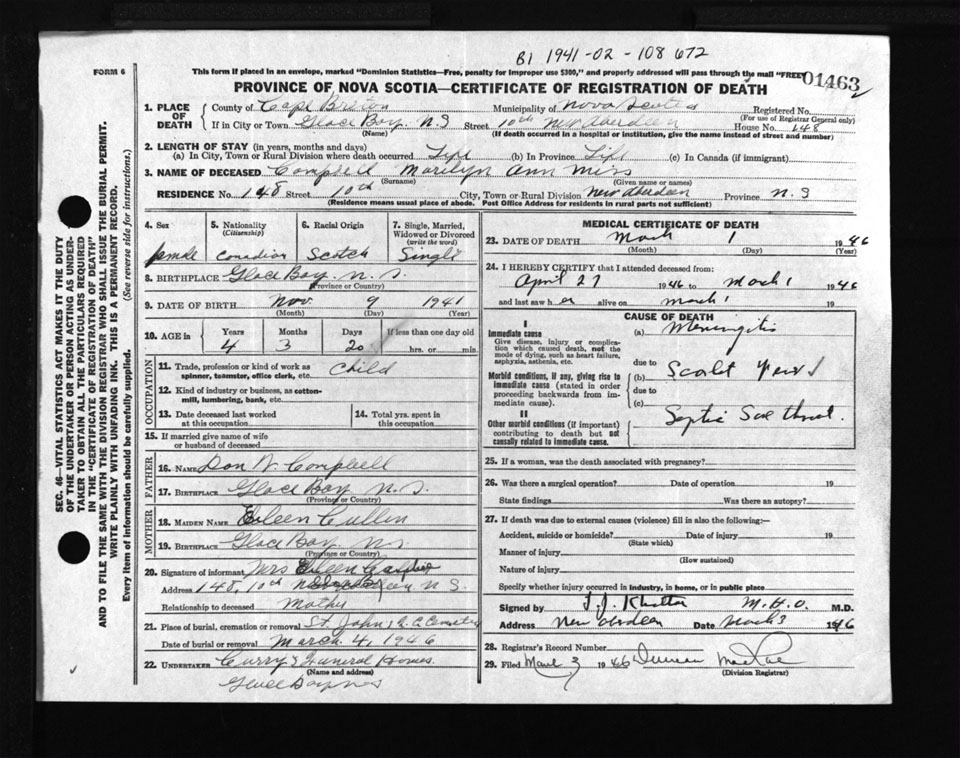 B1 1941-02-108672
FORM 6
This form if placed in an envelope, marked "Dominion Statistics—Free, penalty for improper use $300," and properly addressed will pass through the mail "FREE"
01463
PROVINCE OF NOVA SCOTIA—CERTIFICATE OF REGISTRATION OF DEATH
1. PLACE OF DEATH
County of Cape Breton Municipality of Nova Scotia Registered No.
(For use of Registrar General only)
If in City or Town Glace Bay N.S Street 10th New Aberdeen House No. 148
(Name) (If death occurred in a hospital or institution, give the name instead of street and number)
2. LENGTH OF STAY (in years, months and days)
(a) In City, Town or Rural Division where death occurred Life (b) In Province Life (c) In Canada (if immigrant)
3. NAME OF DECEASED Campbell Marilyn Ann Miss
(Surname) (Given name or names)
RESIDENCE No. 148 Street 10th City, Town or Rural Division New Aberdeen Province N.S
(Residence means usual place of abode. Post Office Address for residents in rural parts not sufficient)
4. Sex female
5. Nationality (Citizenship) Canadian
6. Racial Origin Scotch
7. Single, Married, Widowed or Divorced (write the word) Single
8. BIRTHPLACE Glace Bay N.S.
(Province or Country)
9. DATE OF BIRTH Nov. 9 1941
(Month) (Day) (Year)
10. AGE in Years Months Days If less than one day old
4 3 20 hrs. or min
OCCUPATION
11. Trade, profession or kind of work as spinner, teamster, office clerk, etc. Child
12. Kind of industry or business, as cotton-mill, lumbering, bank, etc.
13. Date deceased last worked at this occupation
14. Total yrs. spent in this occupation
15. If married give name of wife or husband of deceased
FATHER
16. NAME Don W. Campbell
17. BIRTHPLACE Glace Bay N.S.
(Province or Country)
MOTHER
18. MAIDEN NAME Eileen Cullen
19. BIRTHPLACE Glace Bay N.S.
(Province or Country)
20. Signature of informant Mrs Eileen Campbell
Address 148, 10th N.S.
Relationship to deceased Mother
21. Place of burial, cremation or removal St. John's R.C. Cemetery
Date of burial or removal March 4, 1946
22. UNDERTAKER Curry's Funeral Homes.
(Name and address)
Glace Bay NS
MEDICAL CERTIFICATE OF DEATH
23. DATE OF DEATH March 1 1946
(Month) (Day) (Year)
24. I HEREBY CERTIFY that I attended deceased from:
April 27 1946 to March 1 1946
and last saw her alive on March 1 19
CAUSE OF DEATH
I
Immediate cause (a) Meningitis
Give disease, injury or complication which caused death, not the mode of dying, such as heart failure, asphyxia, asthenia, etc.
due to
Morbid conditions, if any, giving rise to immediate cause (stated in order proceeding backwards from immediate cause). (b) Scarlet Fever
due to
(c)
II
Other morbid conditions (if important) contributing to death but not causally related to immediate cause. Septic Sore throat.
25. If a woman, was the death associated with pregnancy?
26. Was there a surgical operation? Date of operation 19
State findings Was there an autopsy?
27. If death was due to external causes (violence) fill in also the following:—
Accident, suicide or homicide? Date of injury 19
(State which)
Manner of injury
(How sustained)
Nature of injury
Specify whether injury occurred in industry, in home, or in public place
Signed by M.H.O. M.D.
Address New Aberdeen Date March 3 1946
28. Registrar's Record Number
29. Filed March 3 1946 Duncan MacRae
(Division Registrar)
SEC. 46—VITAL STATISTICS ACT MAKES IT THE DUTY
OF THE UNDERTAKER OR PERSON ACTING AS UNDER-
TAKER TO OBTAIN ALL THE PARTICULARS REQUIRED
IN THE "CERTIFICATE OF REGISTRATION OF DEATH"
AND TO FILE THE SAME WITH THE DIVISION REGISTRAR WHO SHALL ISSUE THE BURIAL PERMIT.
WRITE PLAINLY WITH UNFADING INK. THIS IS A PERMANENT RECORD.
Every item of Information should be carefully supplied. (See reverse side for instructions.)